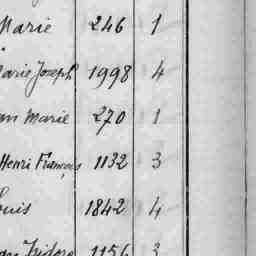 Marie 246 1
Marie Joseph 1998 4
an Marie 270 1
Henri François 1132 3
ouis 1842 4
an Isidore 1156 3